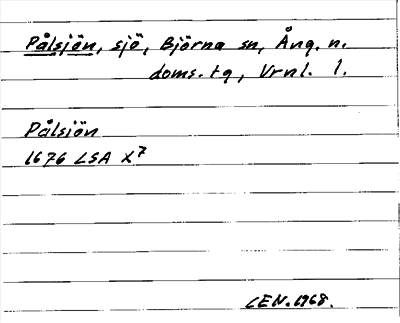 Pålsjön, sjö, Björna sn, Ång. n.
doms. tg, Vrnl. l.
Pålsjön
1676 LSA X7
CEN. 1968.